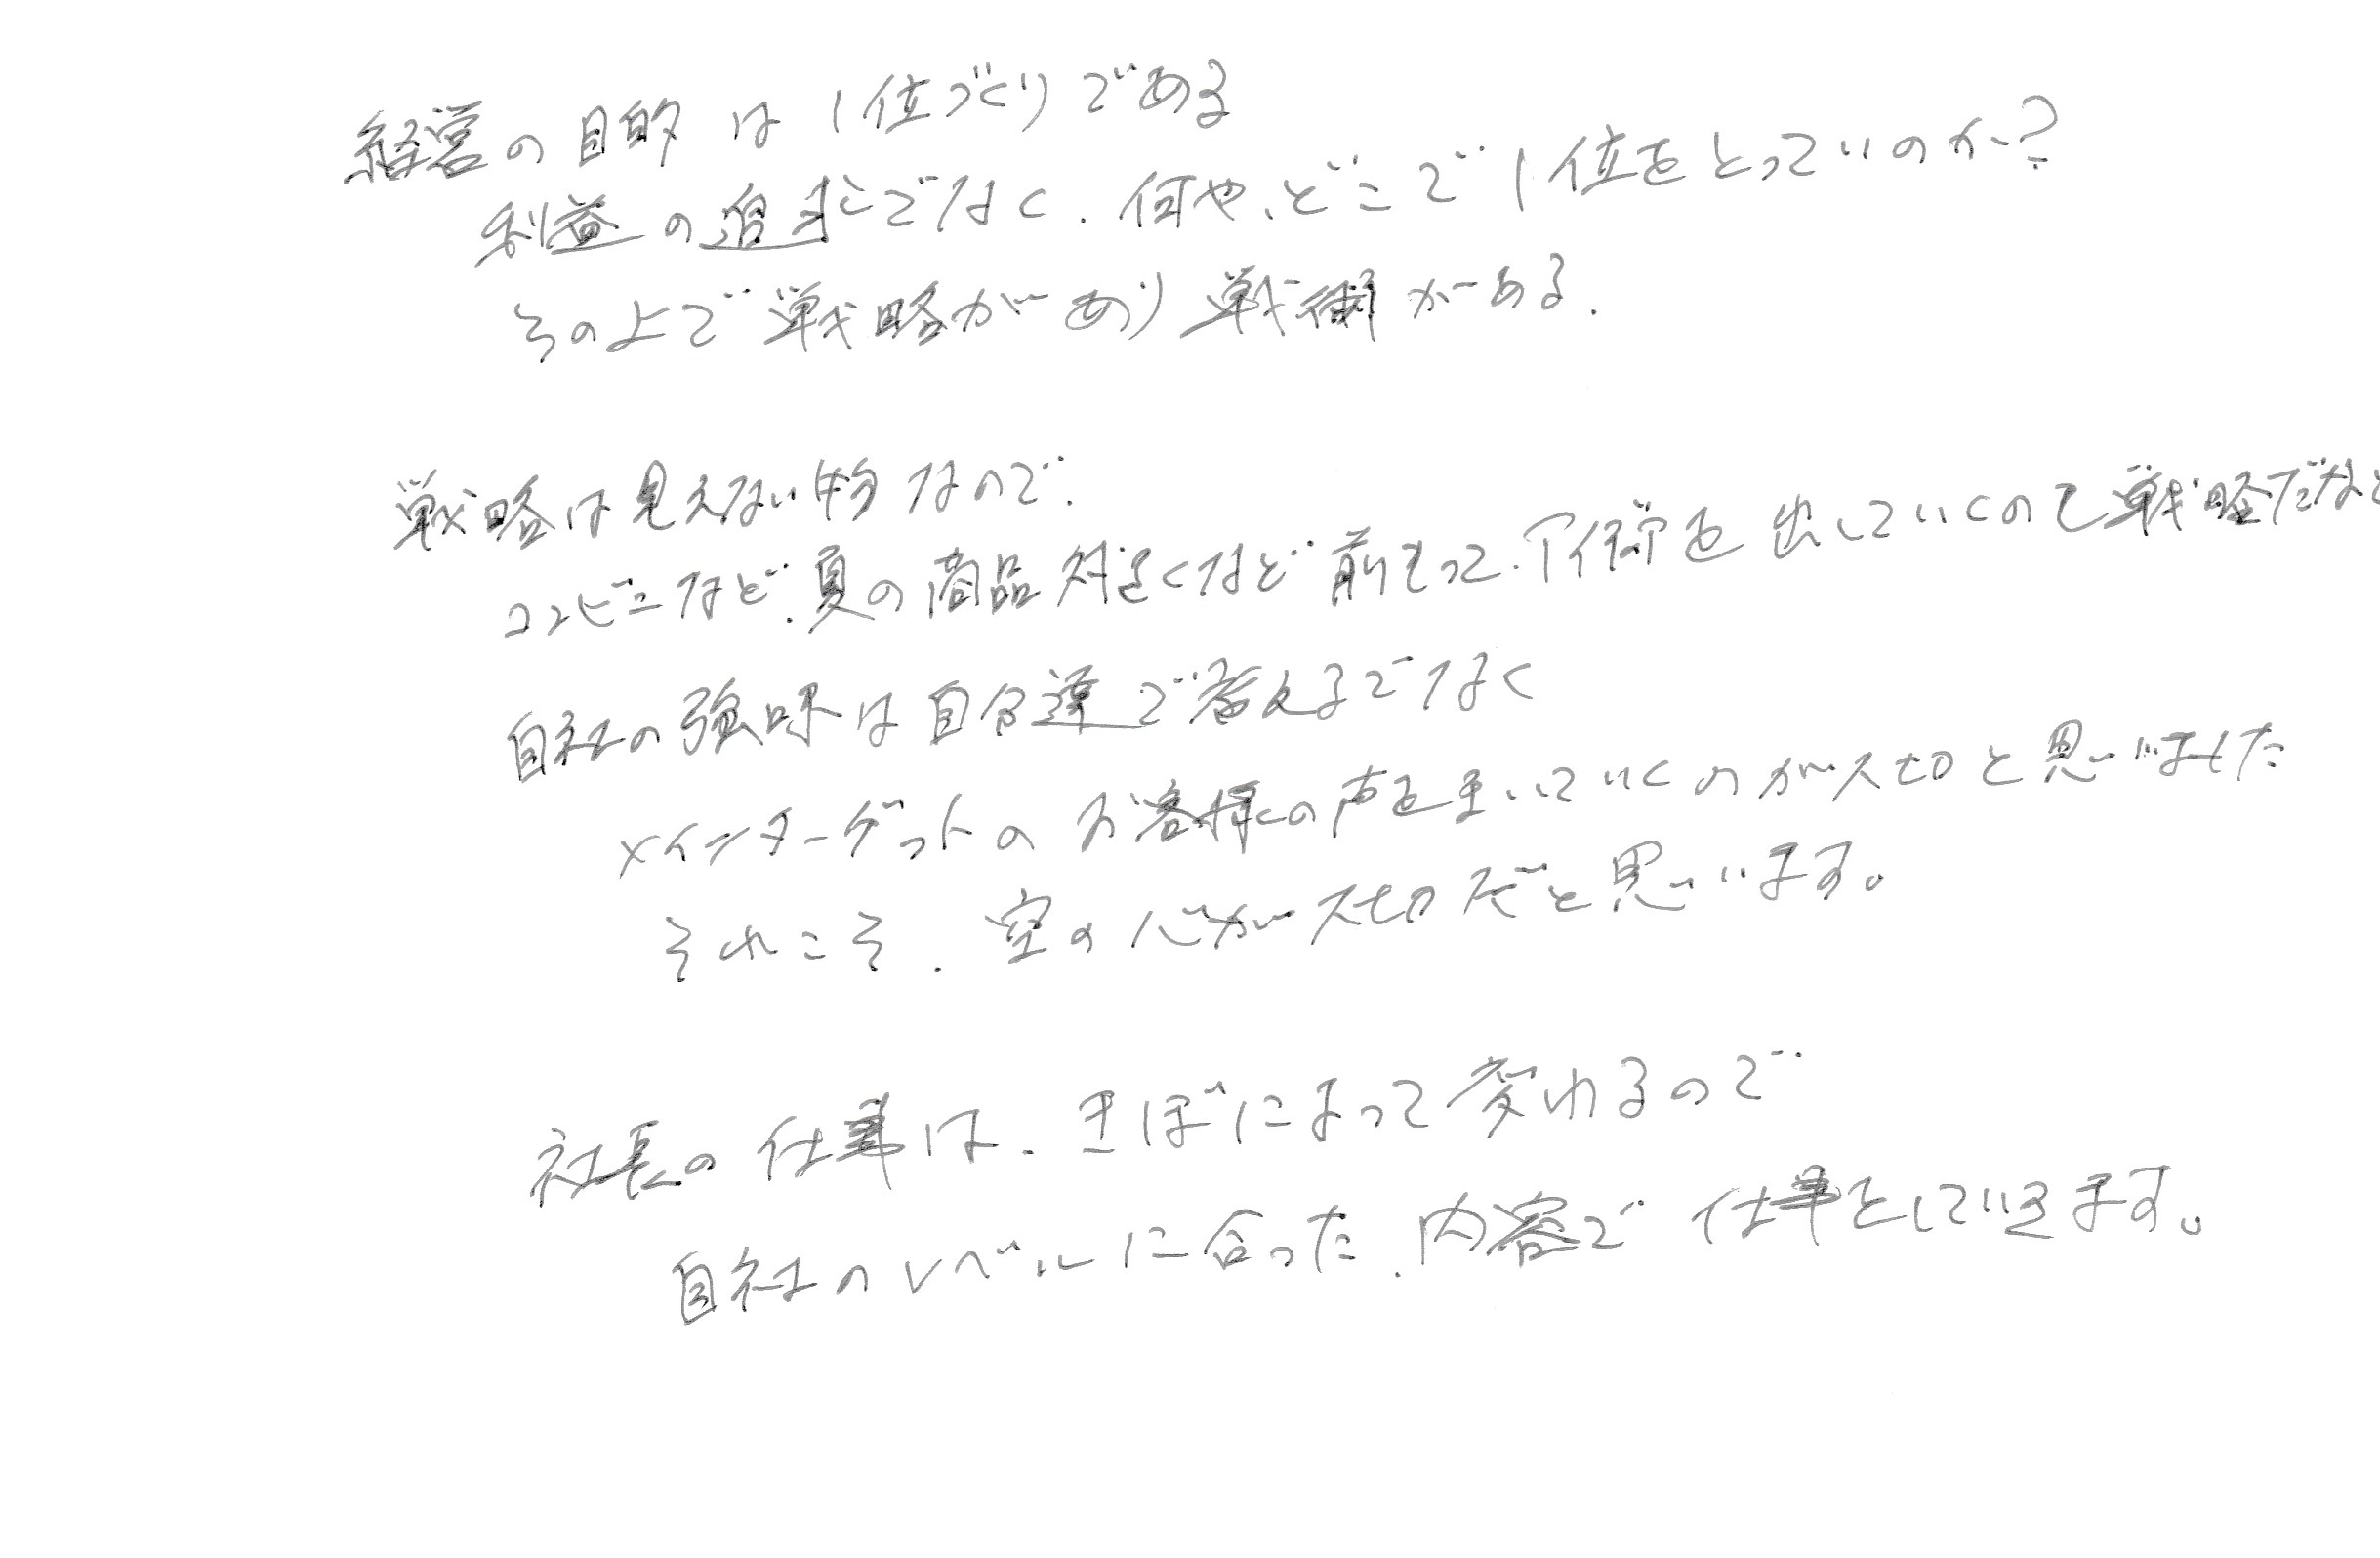 経営の目的は1位づくりである
利益の追求でなく、何や、どこで1位をとっていのか?
その上で戦略があり戦術がある.
戦略は見えない物なので、
コンビニなど、夏の商品 対近くなど 前もって、を出していくのも戦略だなと
自社の強味は自分達で答えるでなく
メインターゲットのお客様の声をきいていくのが大切と思いました
それこそ、空の心が大切だと思います。
社長の仕事は、きぼによって変わるので
自社のレベルに合った、内容で仕事をしていきます。